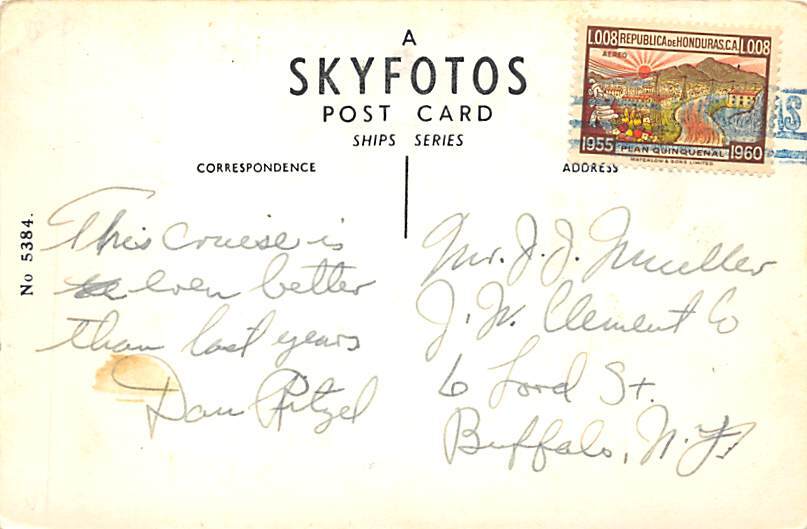 A
SKYFOTOS
POST CARD
SHIPS SERIES
CORRESPONDENCE
ADDRESS
L.008 REPUBLICA DE HONDURAS, C.A. L.008
AEREO
1955 PLAN QUINQUENAL 1960
WATERLOW & SONS LIMITED
AS
No 5384.
This cruise is
even better
than last years
Dan Pitzel
Mr. J. J. Mueller
J. W. Clement Co
6 Lord St.
Buffalo, N.Y.